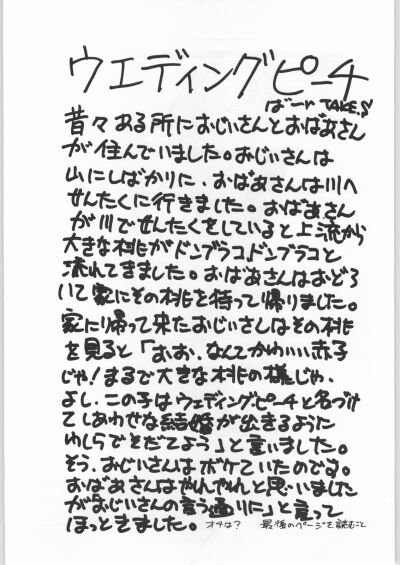 ウエディングピーチ
ばーr TAKE.S
昔々ある所におじいさんとおばあさん
が住んでいました。おじいさんは
山にしばかりに、おばあさんは川へ
せんたくに行きました。おばあさん
が川でせんたくをしていると上流から
大きな桃がドンブラコ、ドンブラコと
流れてきました。おばあさんはおどろ
いて家にその桃を持って帰りました。
家に帰って来たおじいさんはその桃
を見ると「おお、なんてかわいい赤子
じゃ!まるで大きな桃の様じゃ、
よし、この子はウェディングピーチと名づけ
てしあわせな結婚が出きるように
わしらでそだてよう」と言いました。
そう、おじいさんはボケていたのである。
おばあさんはやれやれと思いました
がおじいさんの言う通りに」と言って
ほっときました。
オチは? 最後のページを読むこと